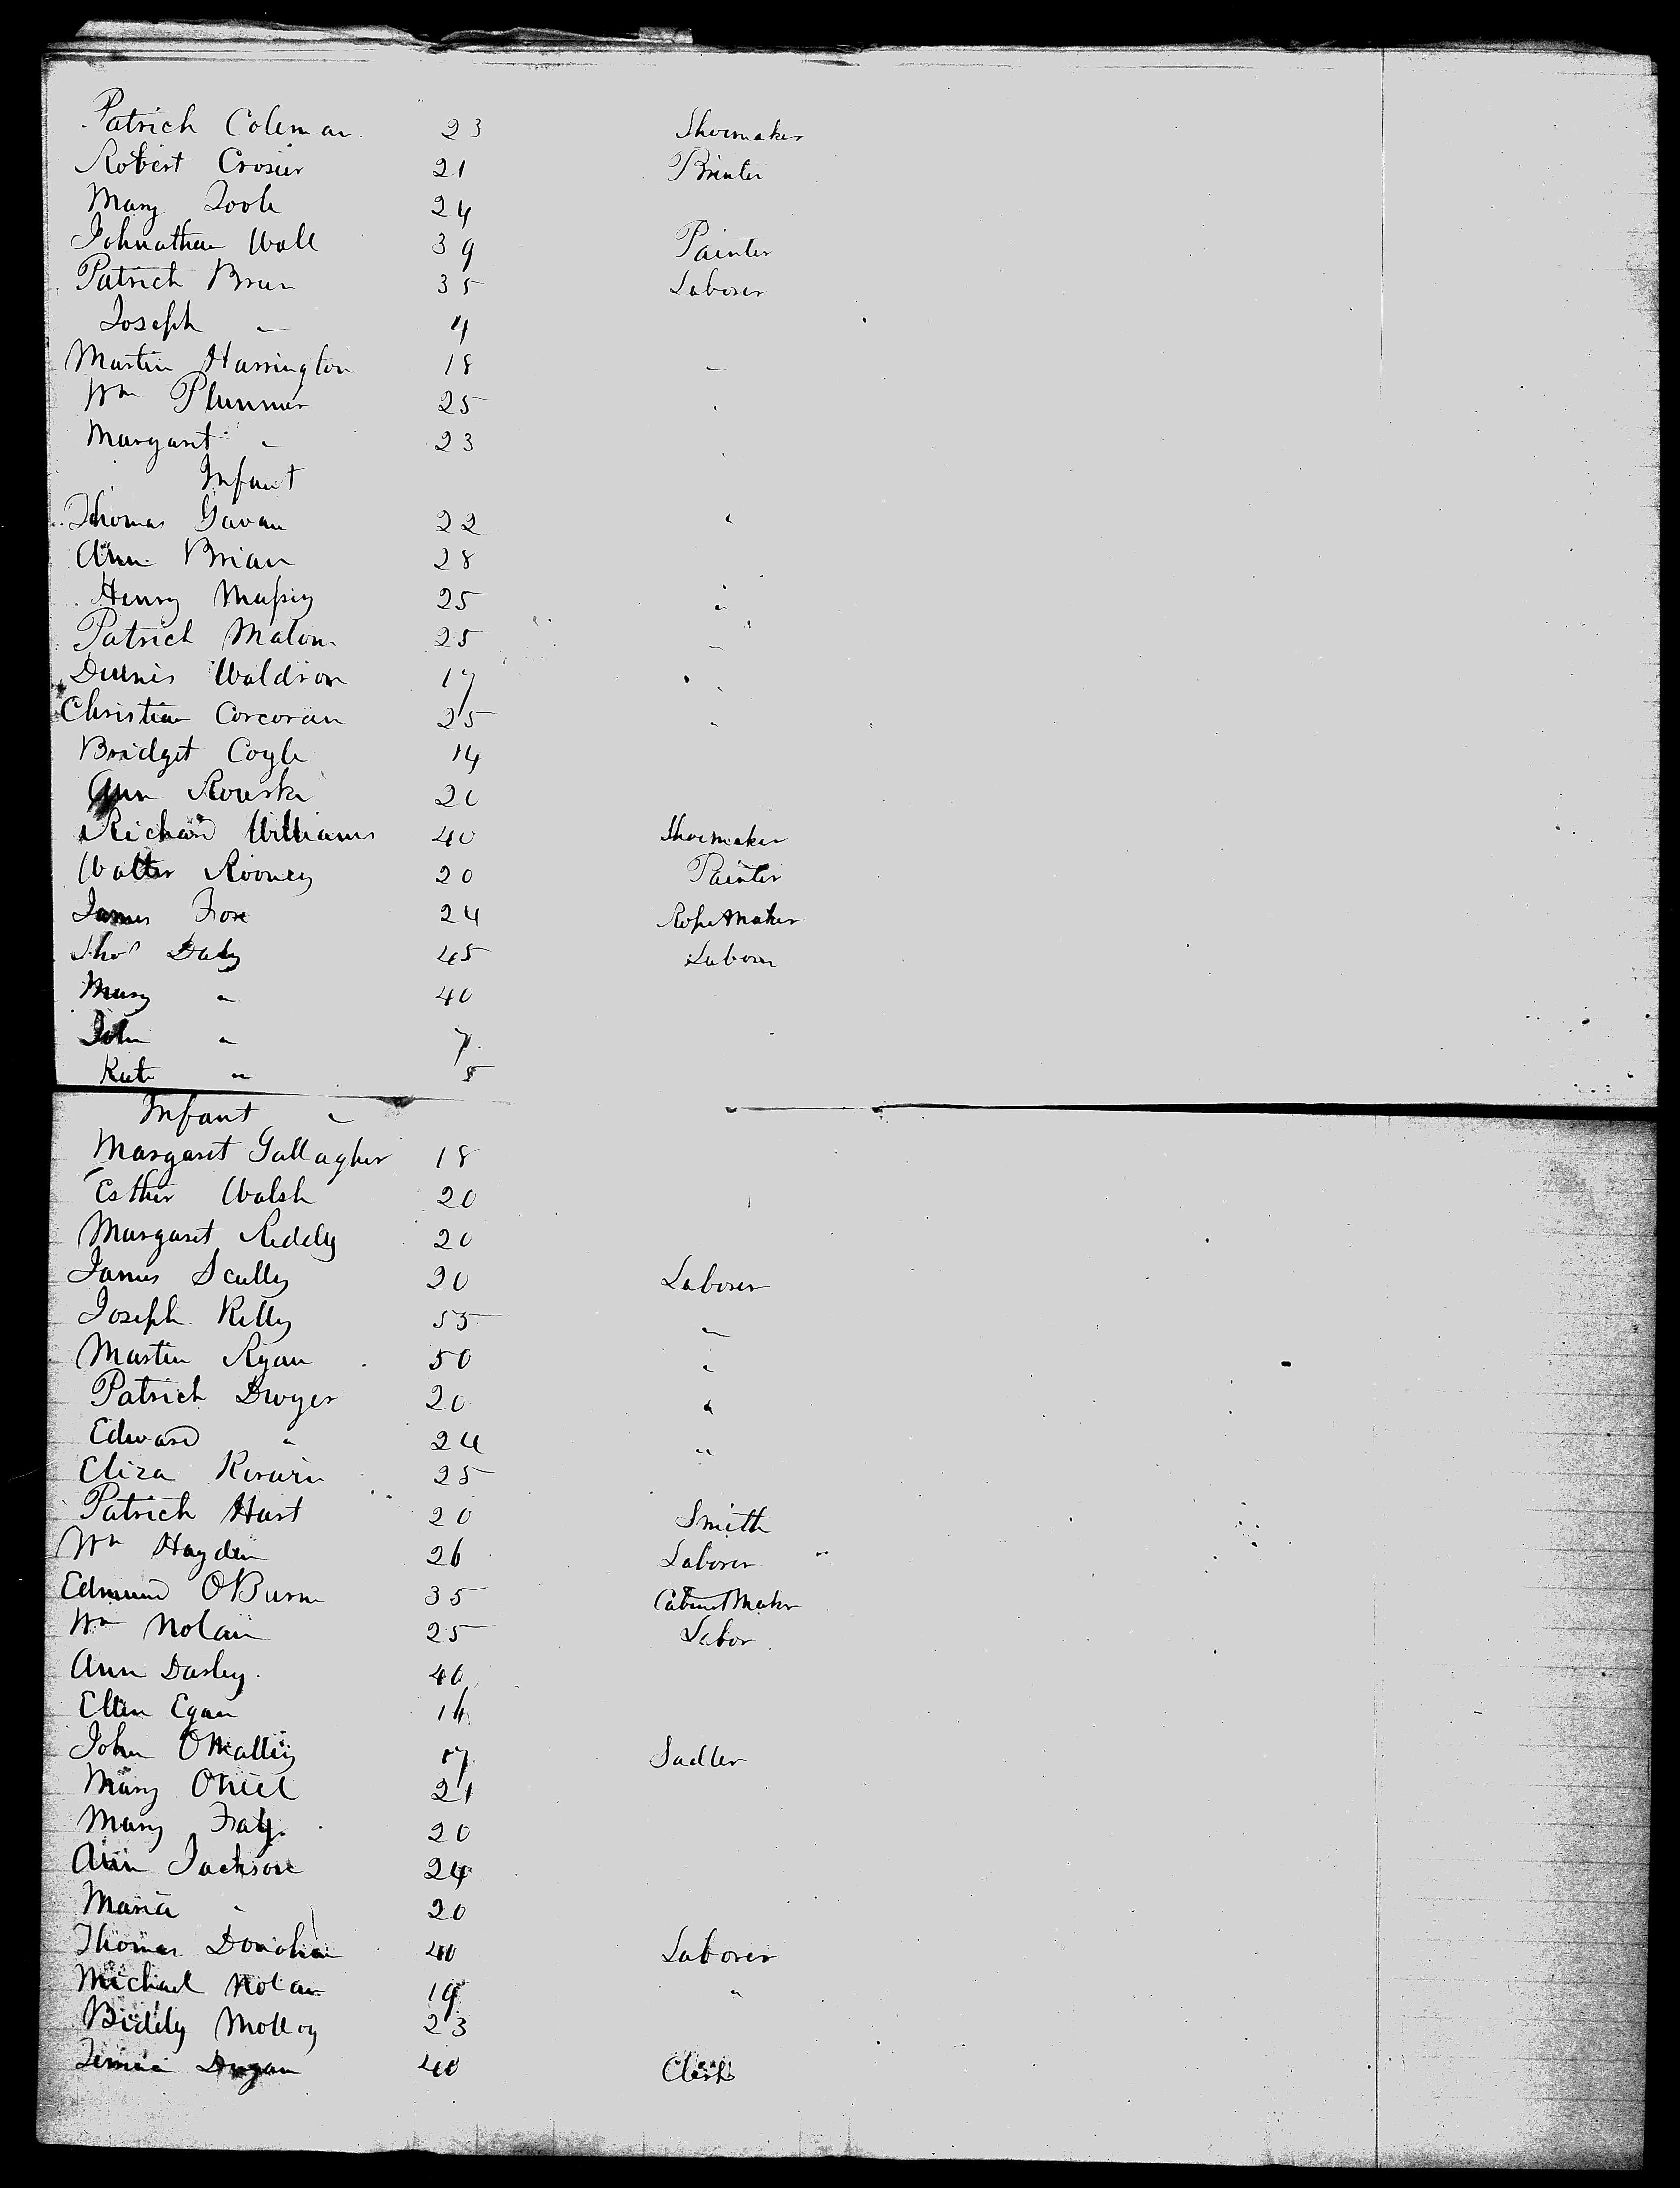 Patrick Coleman 23 Shoemaker
Robert Crosier 21 Printer
Mary Toole 24
Johnathan Wall 39 Painter
Patrick Brien 35 Laborer
Joseph " 4
Martin Harrington 18 "
Wm Plummer 25 "
Margaret " 23
Infant
Thomas Gavan 22 "
Ann Brian 28
Henry Massey 25 "
Patrick Malon 25 "
Dennis Waldron 17 "
Christian Corcoran 25 "
Bridget Coyle 14
Ann 20
Richard Williams 40 Shoemaker
Walter Rooney 20 Painter
James Fox 24 RopeMaker
Thos Daly 45 Laborer
Mary " 40
John " 7
Kate " 5
Infant "
Margaret Gallagher 18
Esther Walsh 20
Margaret Reddy 20
James Scully 20 Laborer
Joseph Kelly 55 "
Martin Ryan 50 "
Patrick Dwyer 20 "
Edward " 24 "
Eliza Kirwin 25
Patrick Hart 20 Smith
Wm Hayden 26 Laborer
Edmund OBurn 35 CabinetMaker
Wm Nolan 25 Labor
Ann Darley 40
Ellen Egan 16
John OMalley 17 Sadler
Mary ONiel 21
Mary Fay 20
Ann Jackson 24
Maria " 20
Thomas Donohue 40 Laborer
Michael Nolan 19 "
Biddy Molloy 23
Dugan 40 Clerk